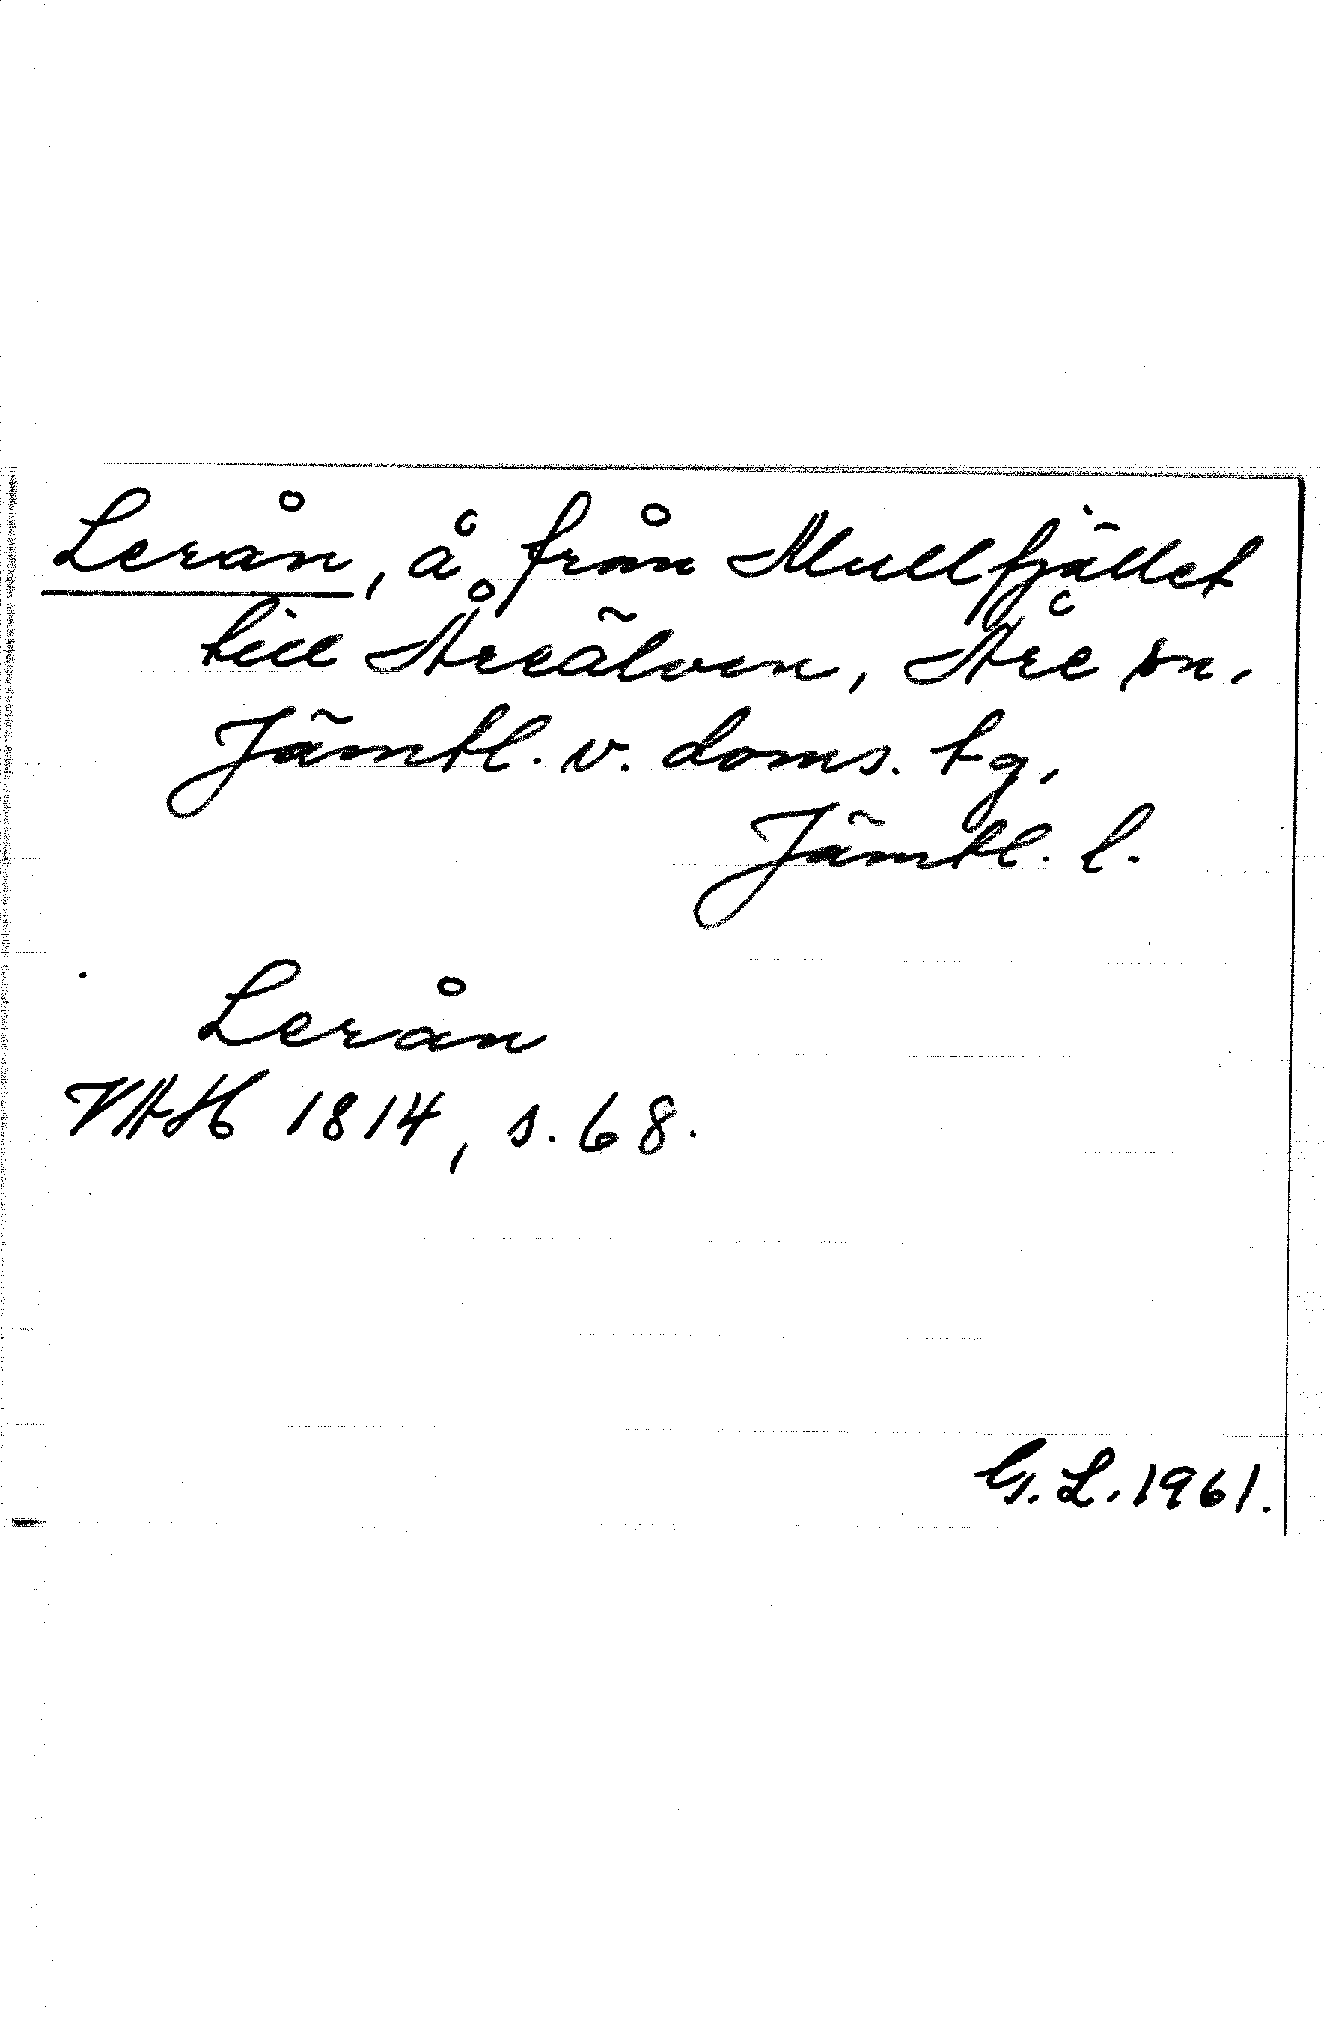 Lerån, å från Mullfjället
till Åreälven, Åre sn.
Jämtl. v. doms. tg,
Jämtl. l.
Lerån
VAH 1814, s. 68.
G. L. 1961.